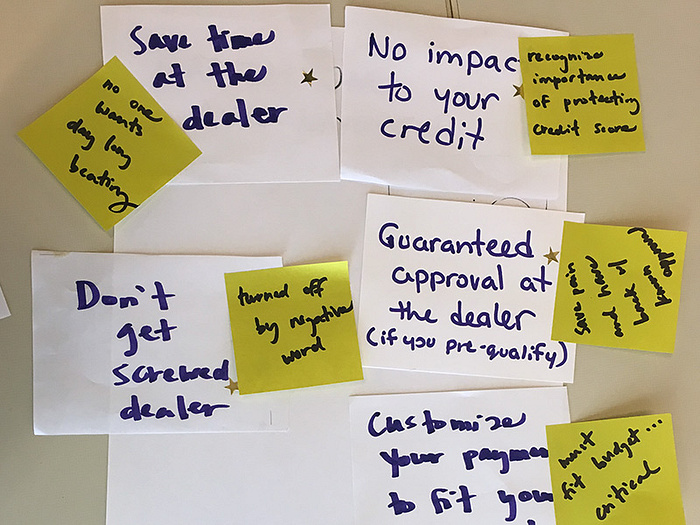 Save time
at the
dealer
no one
wants
day long
beating
No impac
to your
credit
recognize
importance
of protecting
credit score
Guaranteed
approval at
the dealer
(if you pre-qualify)
save pain
and have
bank of
approval
Don't
get
screwed
dealer
turned off
by negative
word
Customize
your payme
to fit you
must
fit budget...
critical